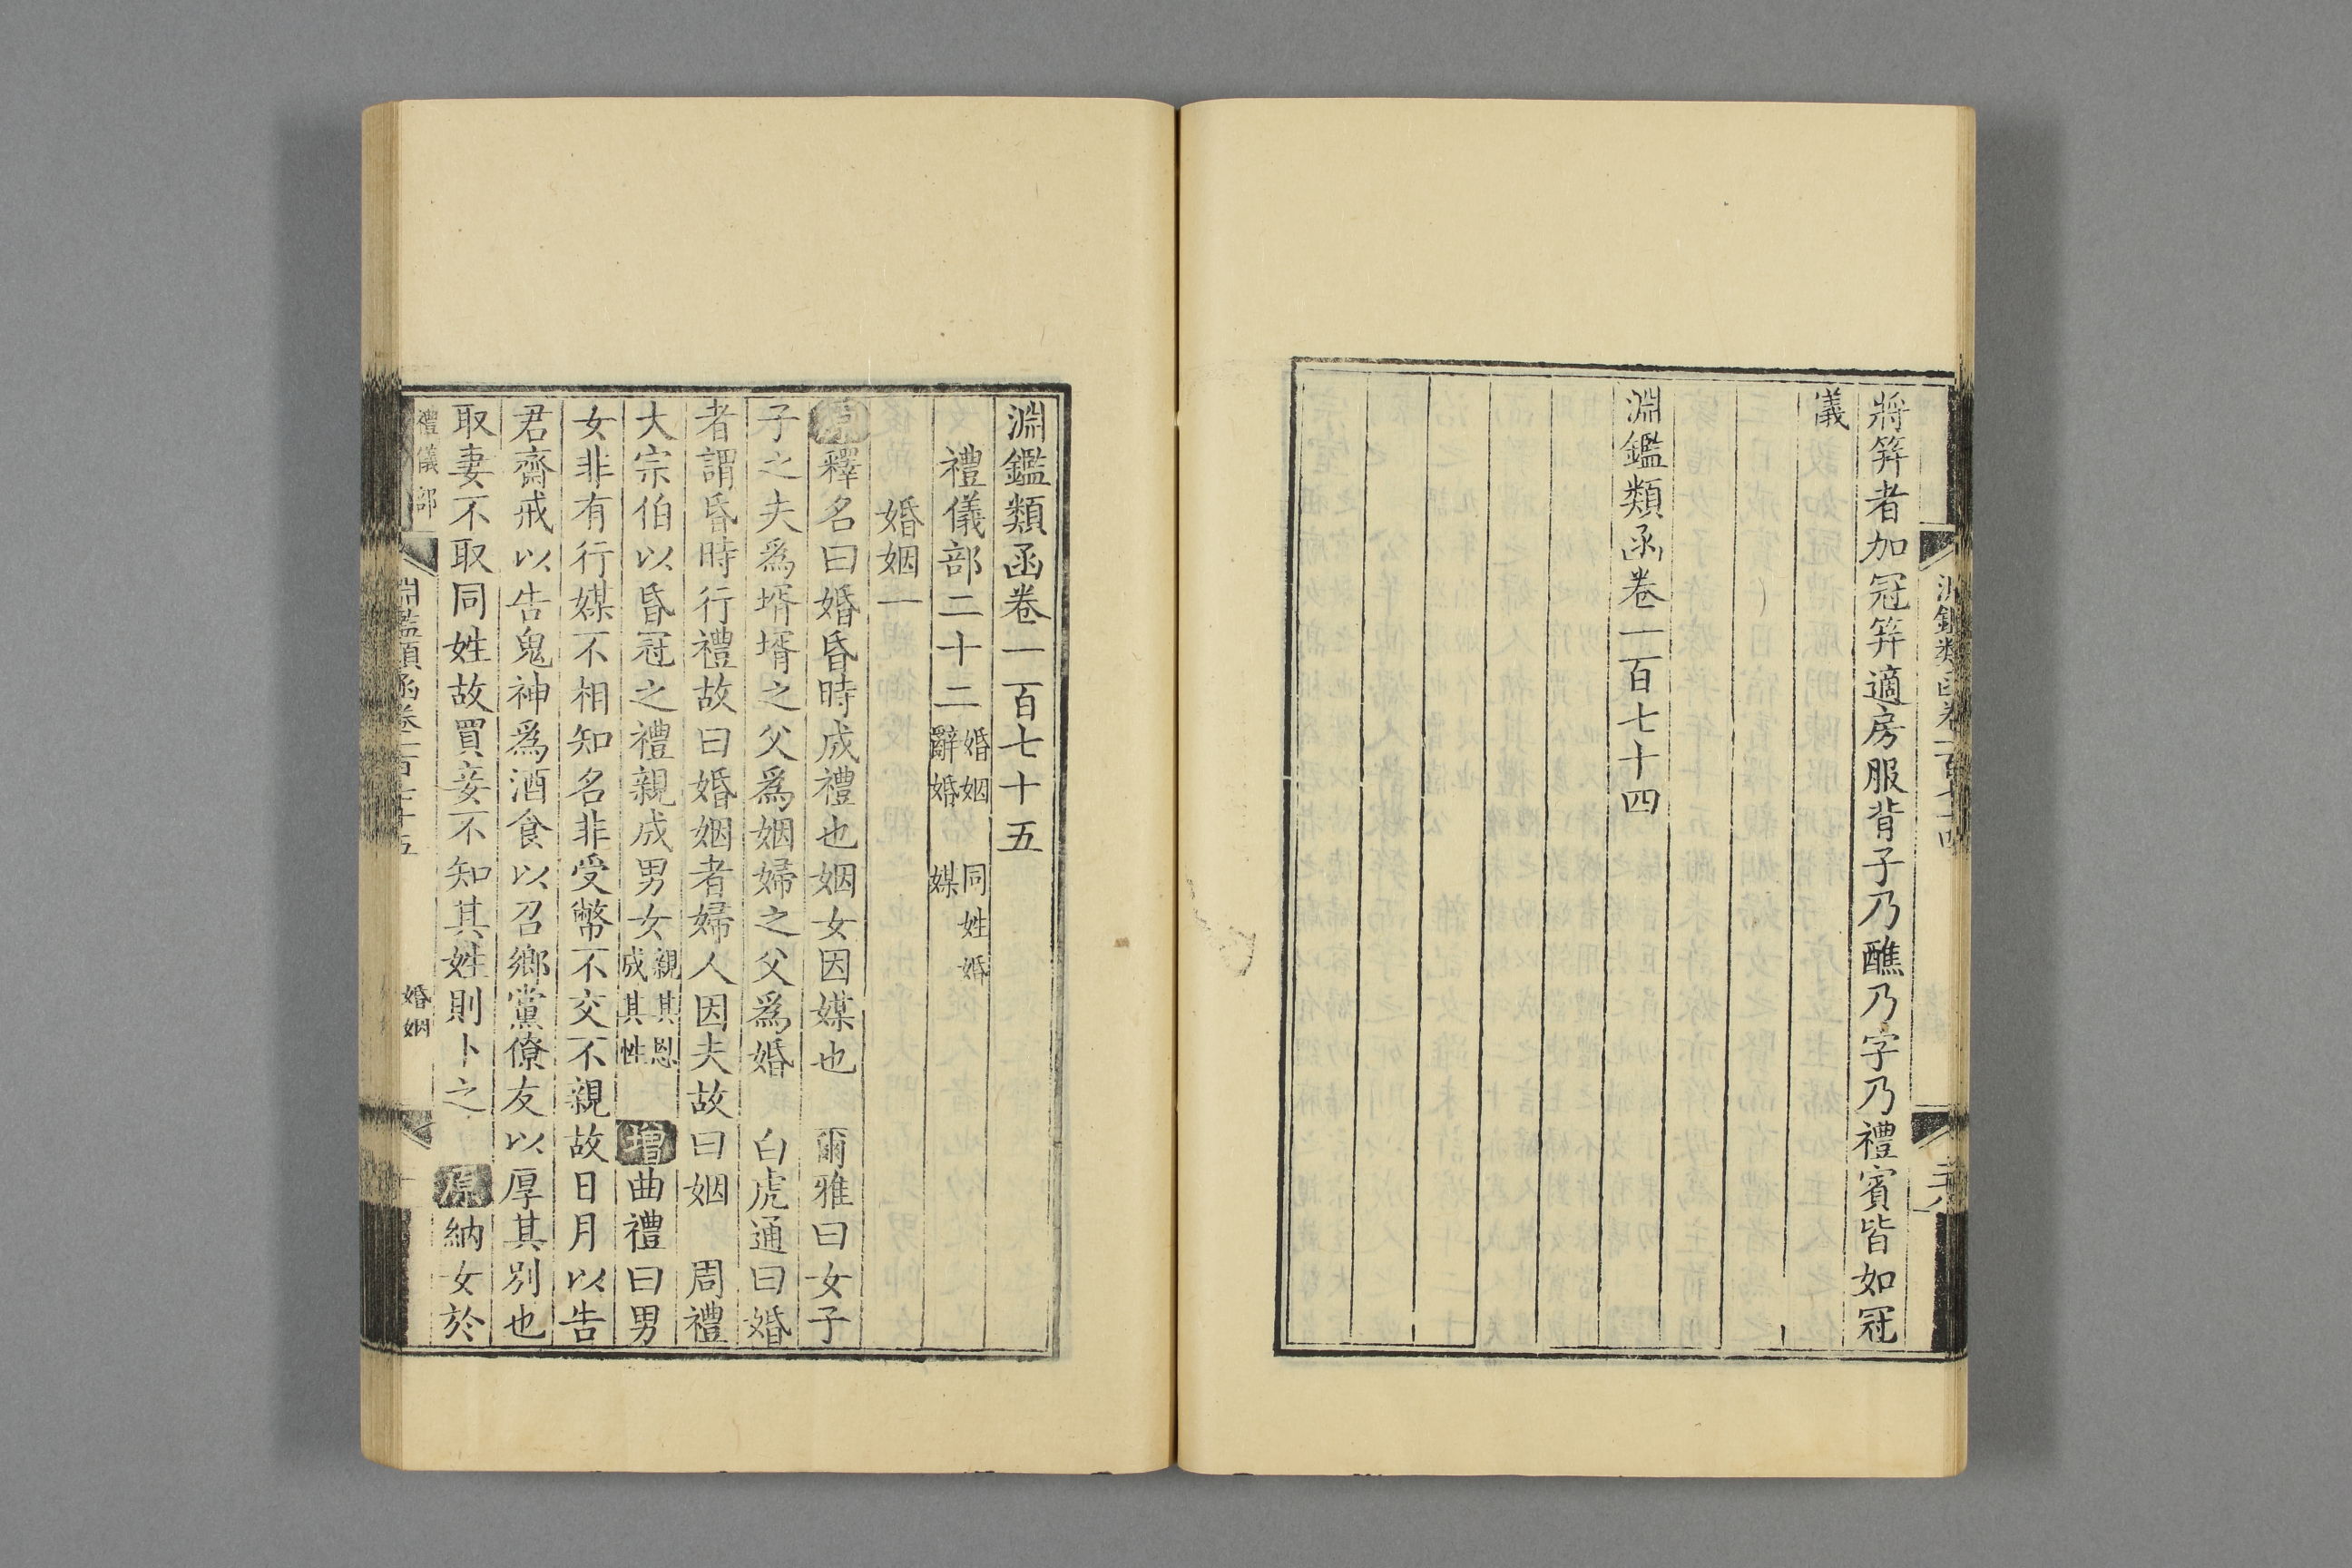 將筓者加冠筓適房服背子乃醮乃字乃禮賓皆如冠
儀
淵鑑類函卷一百七十四
淵鑑類函卷一百七十五
禮儀部二十二 婚姻 同姓婚 辭婚 媒
婚姻一
原釋名曰婚昏時成禮也姻女因媒也 爾雅曰女子
子之夫爲壻壻之父爲姻婦之父爲婚 白虎通曰婚
者謂昏時行禮故曰婚姻者婦人因夫故曰姻 周禮
大宗伯以昏冠之禮親成男女親其恩成其性 增曲禮曰男
女非有行媒不相知名非受幣不交不親故日月以告
君齋戒以告鬼神爲酒食以召鄉黨僚友以厚其別也
取妻不取同姓故買妾不知其姓則卜之 原納女於
禮儀部 淵鑑類函卷一百七十五 婚姻 一